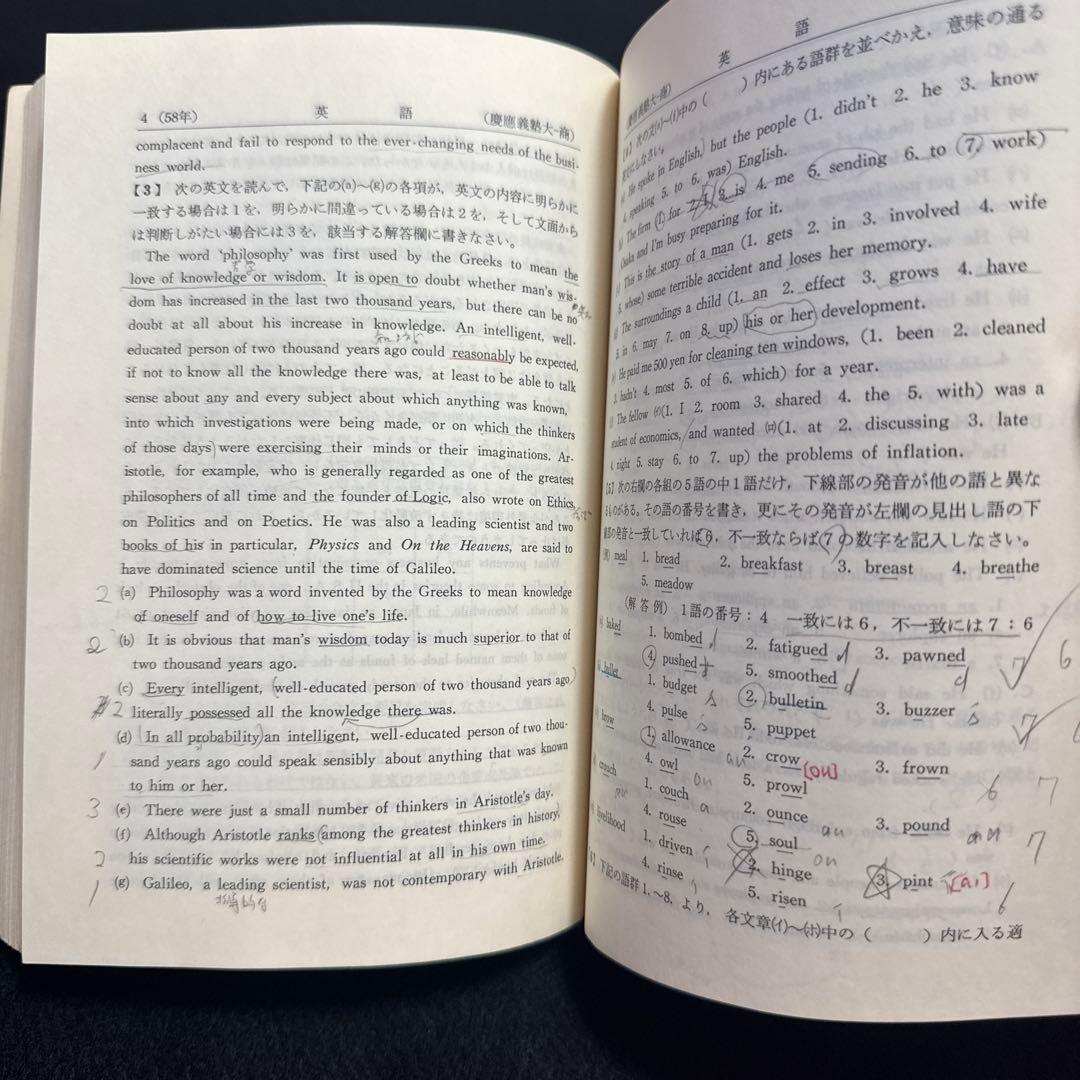 4 (58年) 英 語 (慶應義塾大-商)
complacent and fail to respond to the ever-changing needs of the busi-
ness world.
【3】 次の英文を読んで，下記の(a)～(g)の各項が，英文の内容に明らかに
一致する場合は1を，明らかに間違っている場合は2を，そして文面から
は判断しがたい場合には3を，該当する解答欄に書きなさい。
The word ‘philosophy’ was first used by the Greeks to mean the
love of knowledge or wisdom. It is open to doubt whether man's wis-
dom has increased in the last two thousand years, but there can be no
doubt at all about his increase in knowledge. An intelligent, well-
educated person of two thousand years ago could reasonably be expected,
if not to know all the knowledge there was, at least to be able to talk
sense about any and every subject about which anything was known,
into which investigations were being made, or on which the thinkers
of those days were exercising their minds or their imaginations. Ar-
istotle, for example, who is generally regarded as one of the greatest
philosophers of all time and the founder of Logic, also wrote on Ethics,
on Politics and on Poetics. He was also a leading scientist and two
books of his in particular, Physics and On the Heavens, are said to
have dominated science until the time of Galileo.
2 (a) Philosophy was a word invented by the Greeks to mean knowledge
of oneself and of how to live one's life.
2 (b) It is obvious that man's wisdom today is much superior to that of
two thousand years ago.
(c) Every intelligent, well-educated person of two thousand years ago
2 literally possessed all the knowledge there was.
(d) In all probability an intelligent, well-educated person of two thou-
1 sand years ago could speak sensibly about anything that was known
to him or her.
3 (e) There were just a small number of thinkers in Aristotle's day.
(f) Although Aristotle ranks among the greatest thinkers in history,
2 his scientific works were not influential at all in his own time.
1 (g) Galileo, a leading scientist, was not contemporary with Aristotle.
英 語
(慶應義塾大-商)
次の文(a)～(f)中の( )内にある語群を並べかえ，意味の通る
英文にしなさい。
He spoke in English, but the people (1. didn't 2. he 3. know
4. speaking 5. to 6. was) English.
The firm (1. for 2. 3. is 4. me 5. sending 6. to 7. work)
Osaka and I'm busy preparing for it.
This is the story of a man (1. gets 2. in 3. involved 4. wife
5. whose) some terrible accident and loses her memory.
The surroundings a child (1. an 2. effect 3. grows 4. have
5. in 6. may 7. on 8. up) his or her development.
He paid me 500 yen for cleaning ten windows, (1. been 2. cleaned
3. hadn't 4. most 5. of 6. which) for a year.
The fellow (イ)(1. I 2. room 3. shared 4. the 5. with) was a
student of economics, and wanted (ロ)(1. at 2. discussing 3. late
4. night 5. stay 6. to 7. up) the problems of inflation.
【5】 次の右欄の各組の5語の中1語だけ，下線部の発音が他の語と異な
るものがある。その語の番号を書き，更にその発音が左欄の見出し語の下
線部の発音と一致していれば6，不一致ならば7の数字を記入しなさい。
(例) meal 1. bread 2. breakfast 3. breast 4. breathe
5. meadow
(解答例) 1語の番号：4 一致には6，不一致には7：6
baked 1. bombed 2. fatigued d 3. pawned d
4. pushed t 5. smoothed d 7 6
bullet 1. budget 2. bulletin 3. buzzer
4. pulse 5. puppet 7
brow 1. allowance 2. crow [ou] 3. frown
4. owl au 5. prowl 6 7
crouch 1. couch 2. ounce au 3. pound au
4. rouse 5. soul ou 7
livelihood 1. driven 2. hinge 3. pint [ai]
4. rinse 5. risen 6
【6】 下記の語群1.～8.より，各文章(イ)～(ホ)中の( )内に入る適